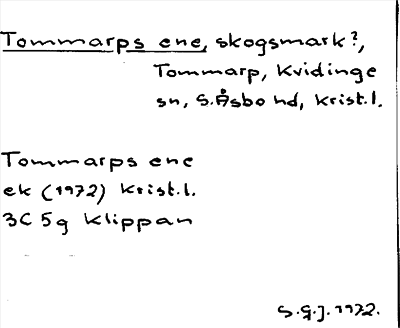 Tommarps ene, skogsmark?,
Tommarp, Kvidinge
sn, S.Åsbo hd, Krist.l.
Tommarps ene
ek (1972) Krist.l.
3C 5g Klippan
S.G.J. 1972.